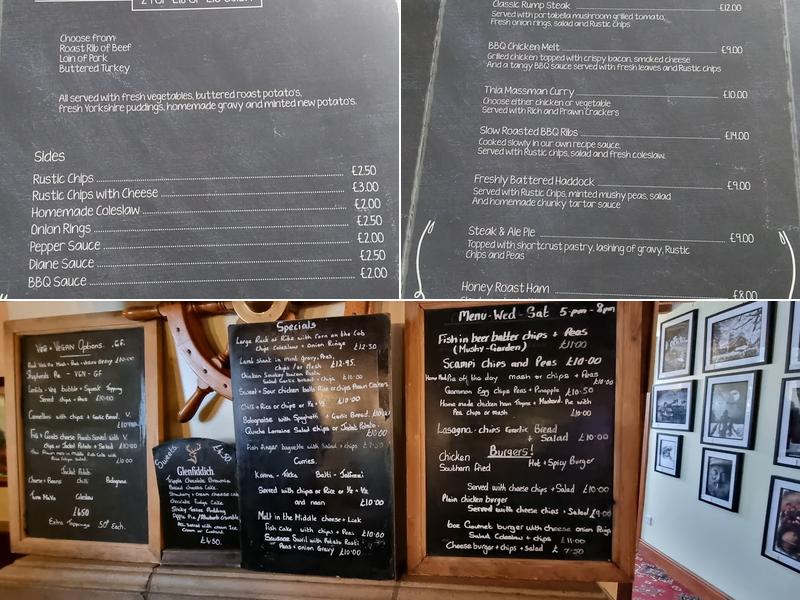 Choose from:
Roast Rib of Beef
Loin of Pork
Buttered Turkey
All served with fresh vegetables, buttered roast potato's,
fresh Yorkshire puddings, homemade gravy and minted new potato's.
Sides
Rustic Chips £2.50
Rustic Chips with Cheese £3.00
Homemade Coleslaw £2.00
Onion Rings £2.50
Pepper Sauce £2.00
Diane Sauce £2.50
BBQ Sauce £2.00
Classic Rump Steak £12.00
Served with portabella mushroom grilled tomato,
Fresh onion rings, salad and Rustic chips
BBQ Chicken Melt £9.00
Grilled chicken topped with crispy bacon, smoked cheese
And a tangy BBQ sauce served with fresh leaves and Rustic chips
Thia Massman Curry £10.00
Choose either chicken or vegetable
Served with Rich and Prawn Crackers
Slow Roasted BBQ Ribs £14.00
Cooked slowly in our own recipe sauce,
Served with Rustic chips, salad and fresh coleslaw.
Freshly Battered Haddock £9.00
Served with Rustic Chips, minted mushy peas, salad
And homemade chunky tartar sauce
Steak & Ale Pie £9.00
Topped with shortcrust pastry, lashing of gravy, Rustic
Chips and Peas
Honey Roast Ham £8.00
Veg + Vegan Options. GF.
£10.00
VGN - GF
Served chips + Peas £10.00
with chips + Garlic Bread. V.
£10.00
Chips or Jacket Potato + Salad £10.00
£10.00
Jacket Potato
Cheese + Beans Chilli Bolognase
Tuna Mayo Coleslaw
£6.50
Extra Toppings 50p Each.
Sweets £4.50
Glenfiddich
Tripple Chocolate Brownie
Baked Cheese Cake.
Strawberry + Cream cheese cake
Chocolate Fudge Cake
Sticky Toffee Pudding
Apple Pie / Rhubarb Crumble
All served with cream Ice
Cream or Custard
£4.50.
Specials
Large Rack of Ribs with Corn on the Cob
Chips Coleslaw + Onion Rings £12.50
Lamb shank in mint gravy, Peas,
Chips / or Mash £12.95.
Chicken Smokey bacon Pasta
Salad Garlic bread + Chips £10.00
Sweet + Sour chicken balls Rice or chips Prawn Crackers
£10.00
Chilli + Rice or chips or ½ + ½
Bolognaise with Spaghetti + Garlic Bread.
Quiche Lorraine Salad chips or Jacket Potato
£10.00
Fish finger baguette with Salad + chips £7.50
Curries.
Korma - Tikka Balti - Jalfrezi
Served with chips or Rice or ½ + ½
and naan £10.00
Melt in the Middle cheese + Leek
Fish Cake with chips + Peas £10.00
Sausage Swirl with Potato Rosti
Peas + onion Gravy £10.00
Menu - Wed - Sat 5-pm - 8pm
Fish in beer batter chips + Peas
(Mushy - Garden) £11.00
Scampi chips and Peas £10.00
Home Made Pie of the day mash or chips + Peas
£10.00
Gammon Egg Chips Peas + Pineapple £10.50
Home made chicken ham Thyme + Mustard Pie with
Peas chips or mash £10.00
Lasagna - chips Garlic Bread
+ Salad £10.00
Burgers!
Chicken
Southern Fried Hot + Spicy Burger
Served with cheese chips + Salad £10.00
Plain chicken burger
Served with cheese chips + Salad £9.00
8oz Gourmet burger with cheese onion Rings
Salad Coleslaw + chips £11.00
Cheese burger + chips + salad £7.50